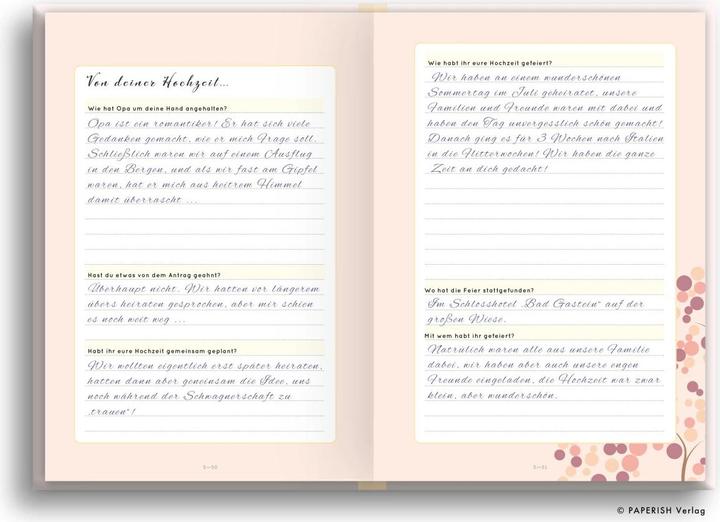 Von deiner Hochzeit...
Wie hat Opa um deine Hand angehalten?
Opa ist ein romantiker! Er hat sich viele
Gedanken gemacht, wie er mich Frage soll.
Schließlich waren wir auf einem Ausflug
in den Bergen, und als wir fast am Gipfel
waren, hat er mich aus heitrem Himmel
damit überrascht ...
Hast du etwas von dem Antrag geahnt?
Überhaupt nicht. Wir hatten vor längerem
übers heiraten gesprochen, aber mir schien
es noch weit weg ...
Habt ihr eure Hochzeit gemeinsam geplant?
Wir wollten eigentlich erst später heiraten,
hatten dann aber geneinsam die Idee, uns
noch während der Schwagnerschaft zu
„trauen“!
5—50
Wie habt ihr eure Hochzeit gefeiert?
Wir haben an einem wunderschönen
Sommertag im Juli geheiratet, unsere
Familien und Freunde waren mit dabei und
haben den Tag unvergesslich schön gemacht!
Danach ging es für 3 Wochen nach Italien
in die Flitterwochen! Wir haben die ganze
Zeit an dich gedacht!
Wo hat die Feier stattgefunden?
Im Schlosshotel „Bad Gastein“ auf der
großen Wiese.
Mit wem habt ihr gefeiert?
Natrülich waren alle aus unsere Familie
dabei, wir haben aber auch unsere engen
Freunde eingeladen, die Hochzeit war zwar
klein, aber wunderschön.
5—51
© PAPERISH Verlag